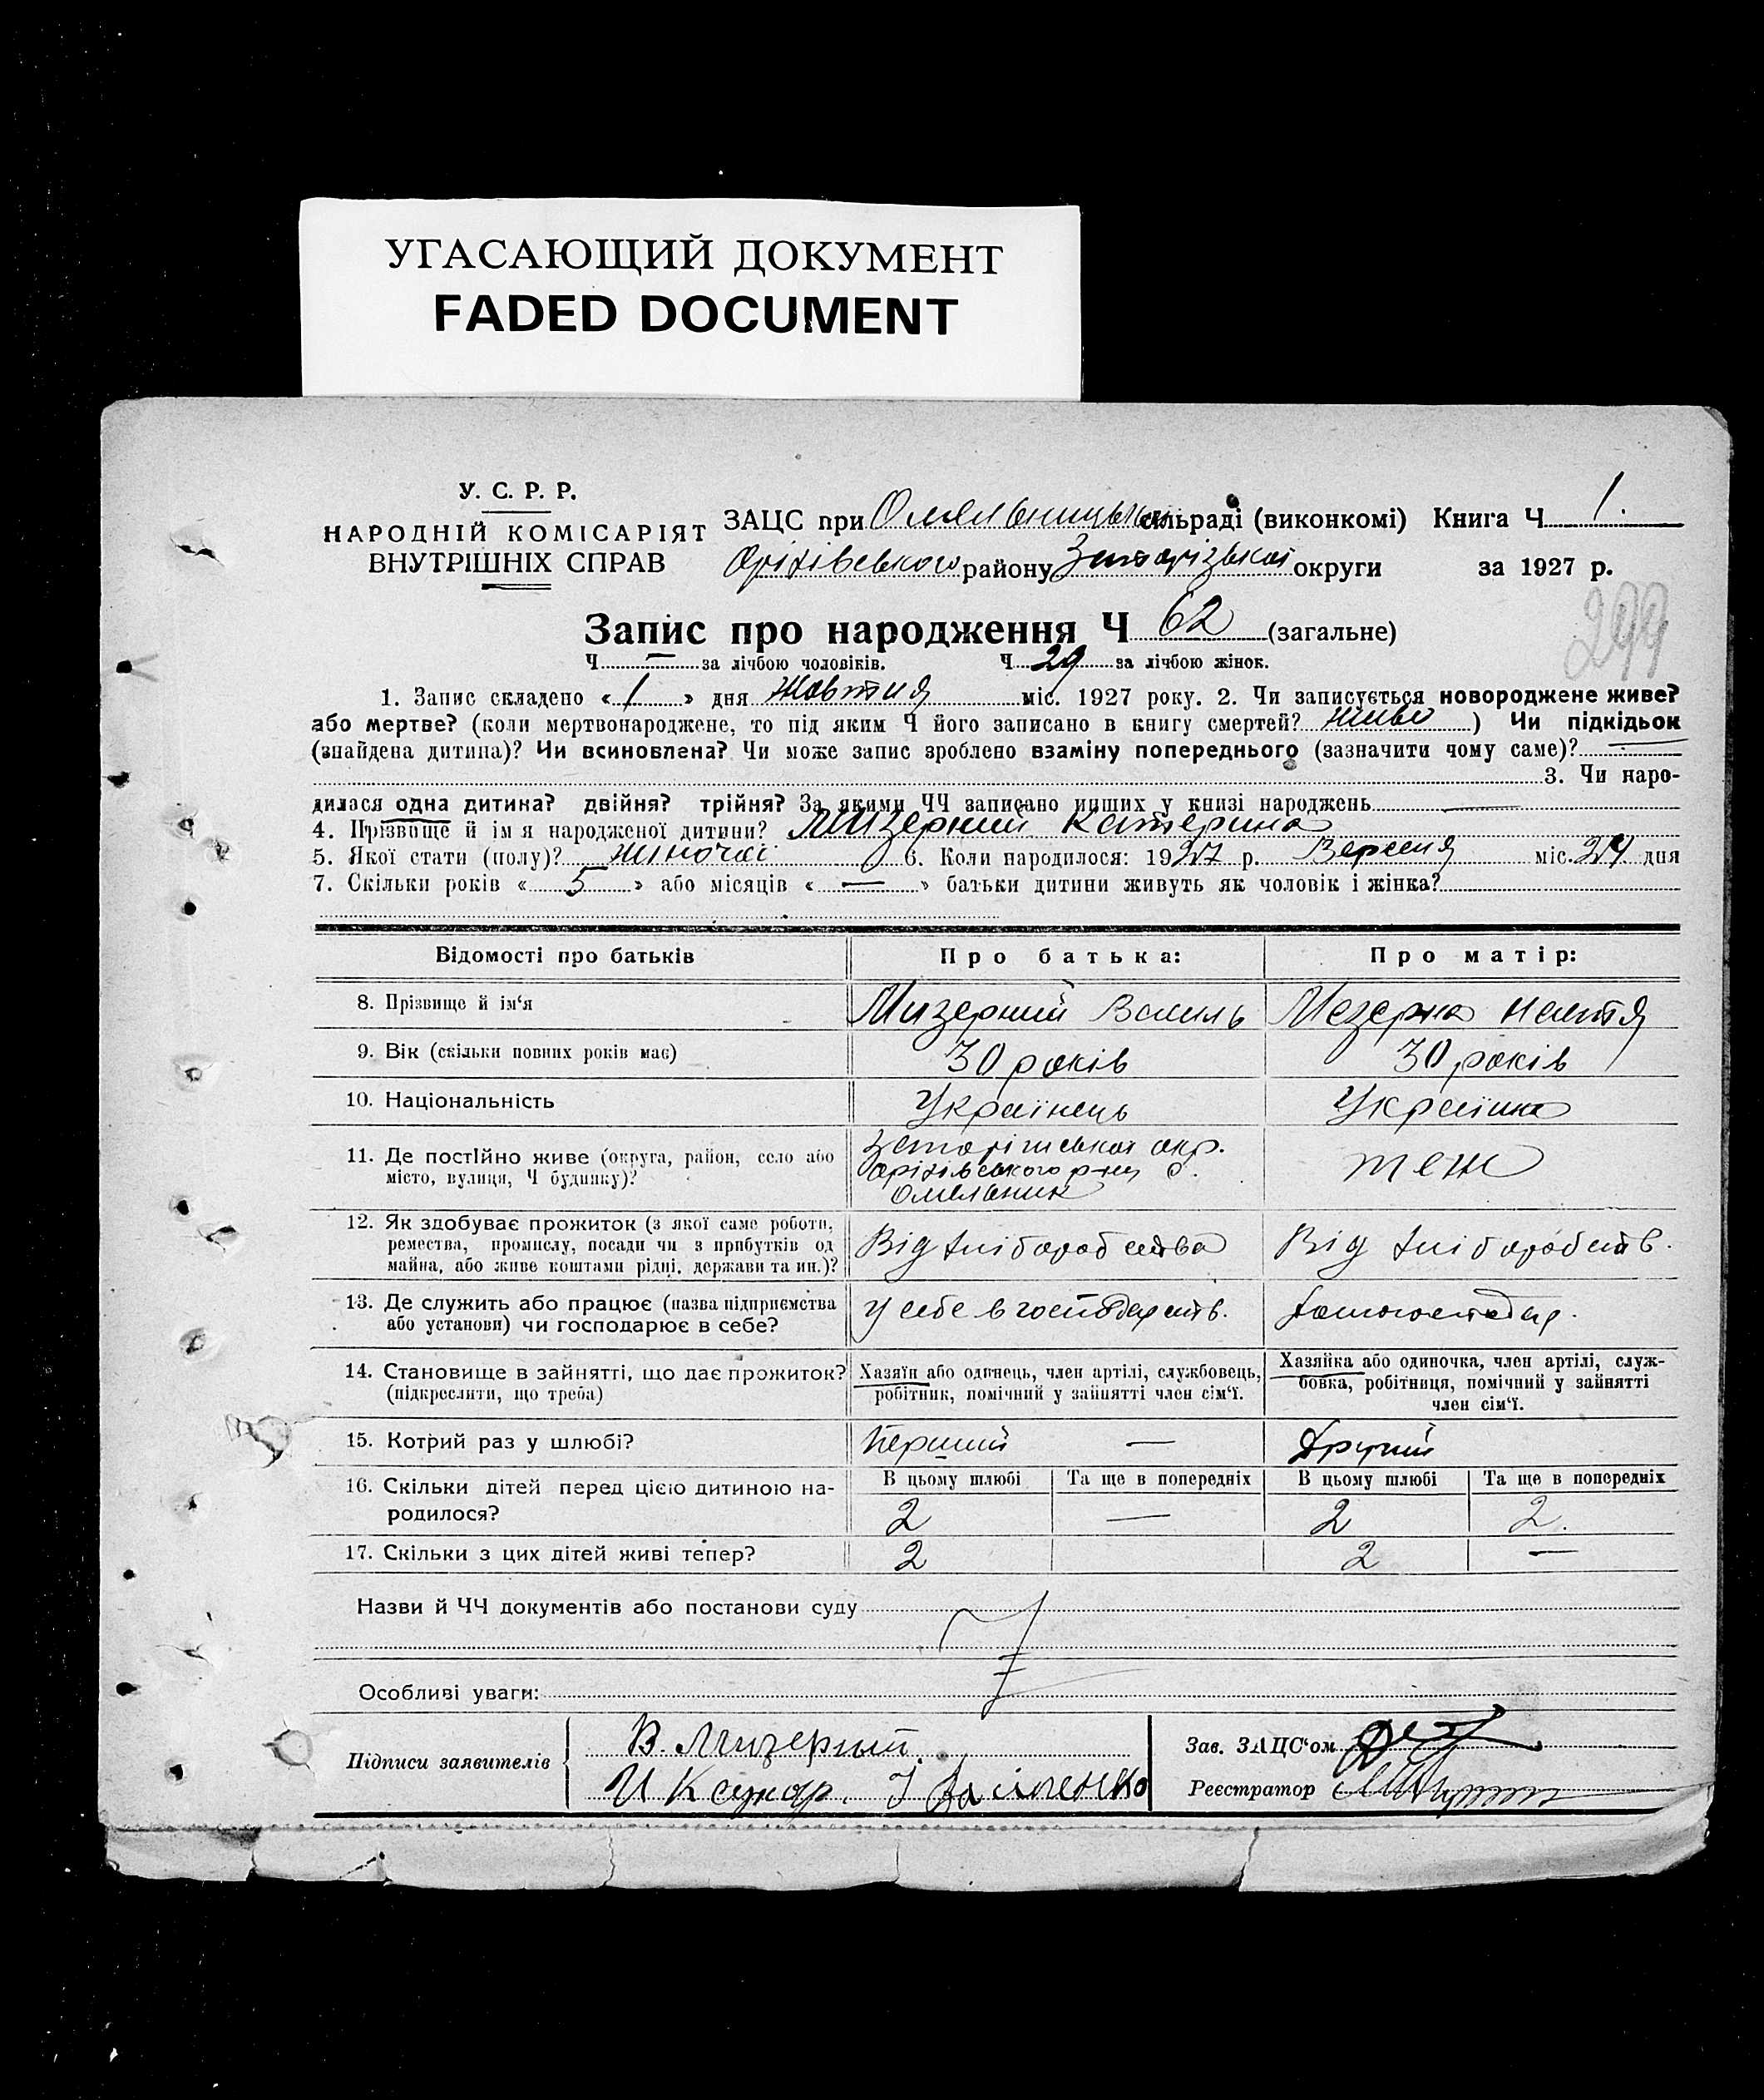 УГАСАЮЩИЙ ДОКУМЕНТ
FADED DOCUMENT
У. С. Р. Р.
НАРОДНІЙ КОМІСАРІЯТ
ВНУТРІШНІХ СПРАВ
ЗАЦС при Омельницькій сільраді (виконкомі) Книга Ч 1.
Оріхівського району Запорізької округи за 1927 р.
299
Запис про народження Ч 62 (загальне)
Ч — за лічбою чоловіків. Ч 29 за лічбою жінок.
1. Запис складено «1» дня Жовтня міс. 1927 року. 2. Чи записується новороджене живе?
або мертве? (коли мертвонароджене, то під яким Ч його записано в книгу смертей? живо) Чи підкідьок
(знайдена дитина)? Чи всиновлена? Чи може запис зроблено взаміну попереднього (зазначити чому саме)? —
3. Чи наро-
дилася одна дитина? двійня? трійня? За якими ЧЧ записано инших у книзі народжень —
4. Прізвище й ім я народженої дитини? Мизерний Катерина
5. Якої стати (полу)? жіночої 6. Коли народилося: 1927 р. Вересня міс. 24 дня
7. Скільки років «5» або місяців «—» батьки дитини живуть як чоловік і жінка?
Відомості про батьків Про батька: Про матір:
8. Прізвище й ім'я Мизерний Василь Мезерна Настя
9. Вік (скільки повних років має) 30 років 30 років
10. Національність Українець Українка
11. Де постійно живе (округа, район, село або
місто, вулиця, Ч будинку)?
Запоріжської окр.
Оріхівського р-ну с.
Омельник
теж
12. Як здобуває прожиток (з якої саме роботи,
ремества, промислу, посади чи з прибутків од
майна, або живе коштами рідні, держави та ин.)?
Від хліборобства Від хліборобств.
13. Де служить або працює (назва підприємства
або установи) чи господарює в себе?
У себе в господарств. домогосподар.
14. Становище в зайнятті, що дає прожиток?
(підкреслити, що треба)
Хазяїн або одинець, член артілі, службовець,
робітник, помічний у зайнятті член сім'ї.
Хазяйка або одиночка, член артілі, служ-
бовка, робітниця, помічний у зайнятті
член сім'ї.
15. Котрий раз у шлюбі? Перший — Другий
16. Скільки дітей перед цією дитиною на-
родилося?
В цьому шлюбі Та ще в попередніх В цьому шлюбі Та ще в попередніх
2 — 2 2.
17. Скільки з цих дітей живі тепер? 2 2 —
Назви й ЧЧ документів або постанови суду
Особливі уваги:
Підписи заявителів
В. Мизерний.
Зав. ЗАЦС'ом
Реєстратор